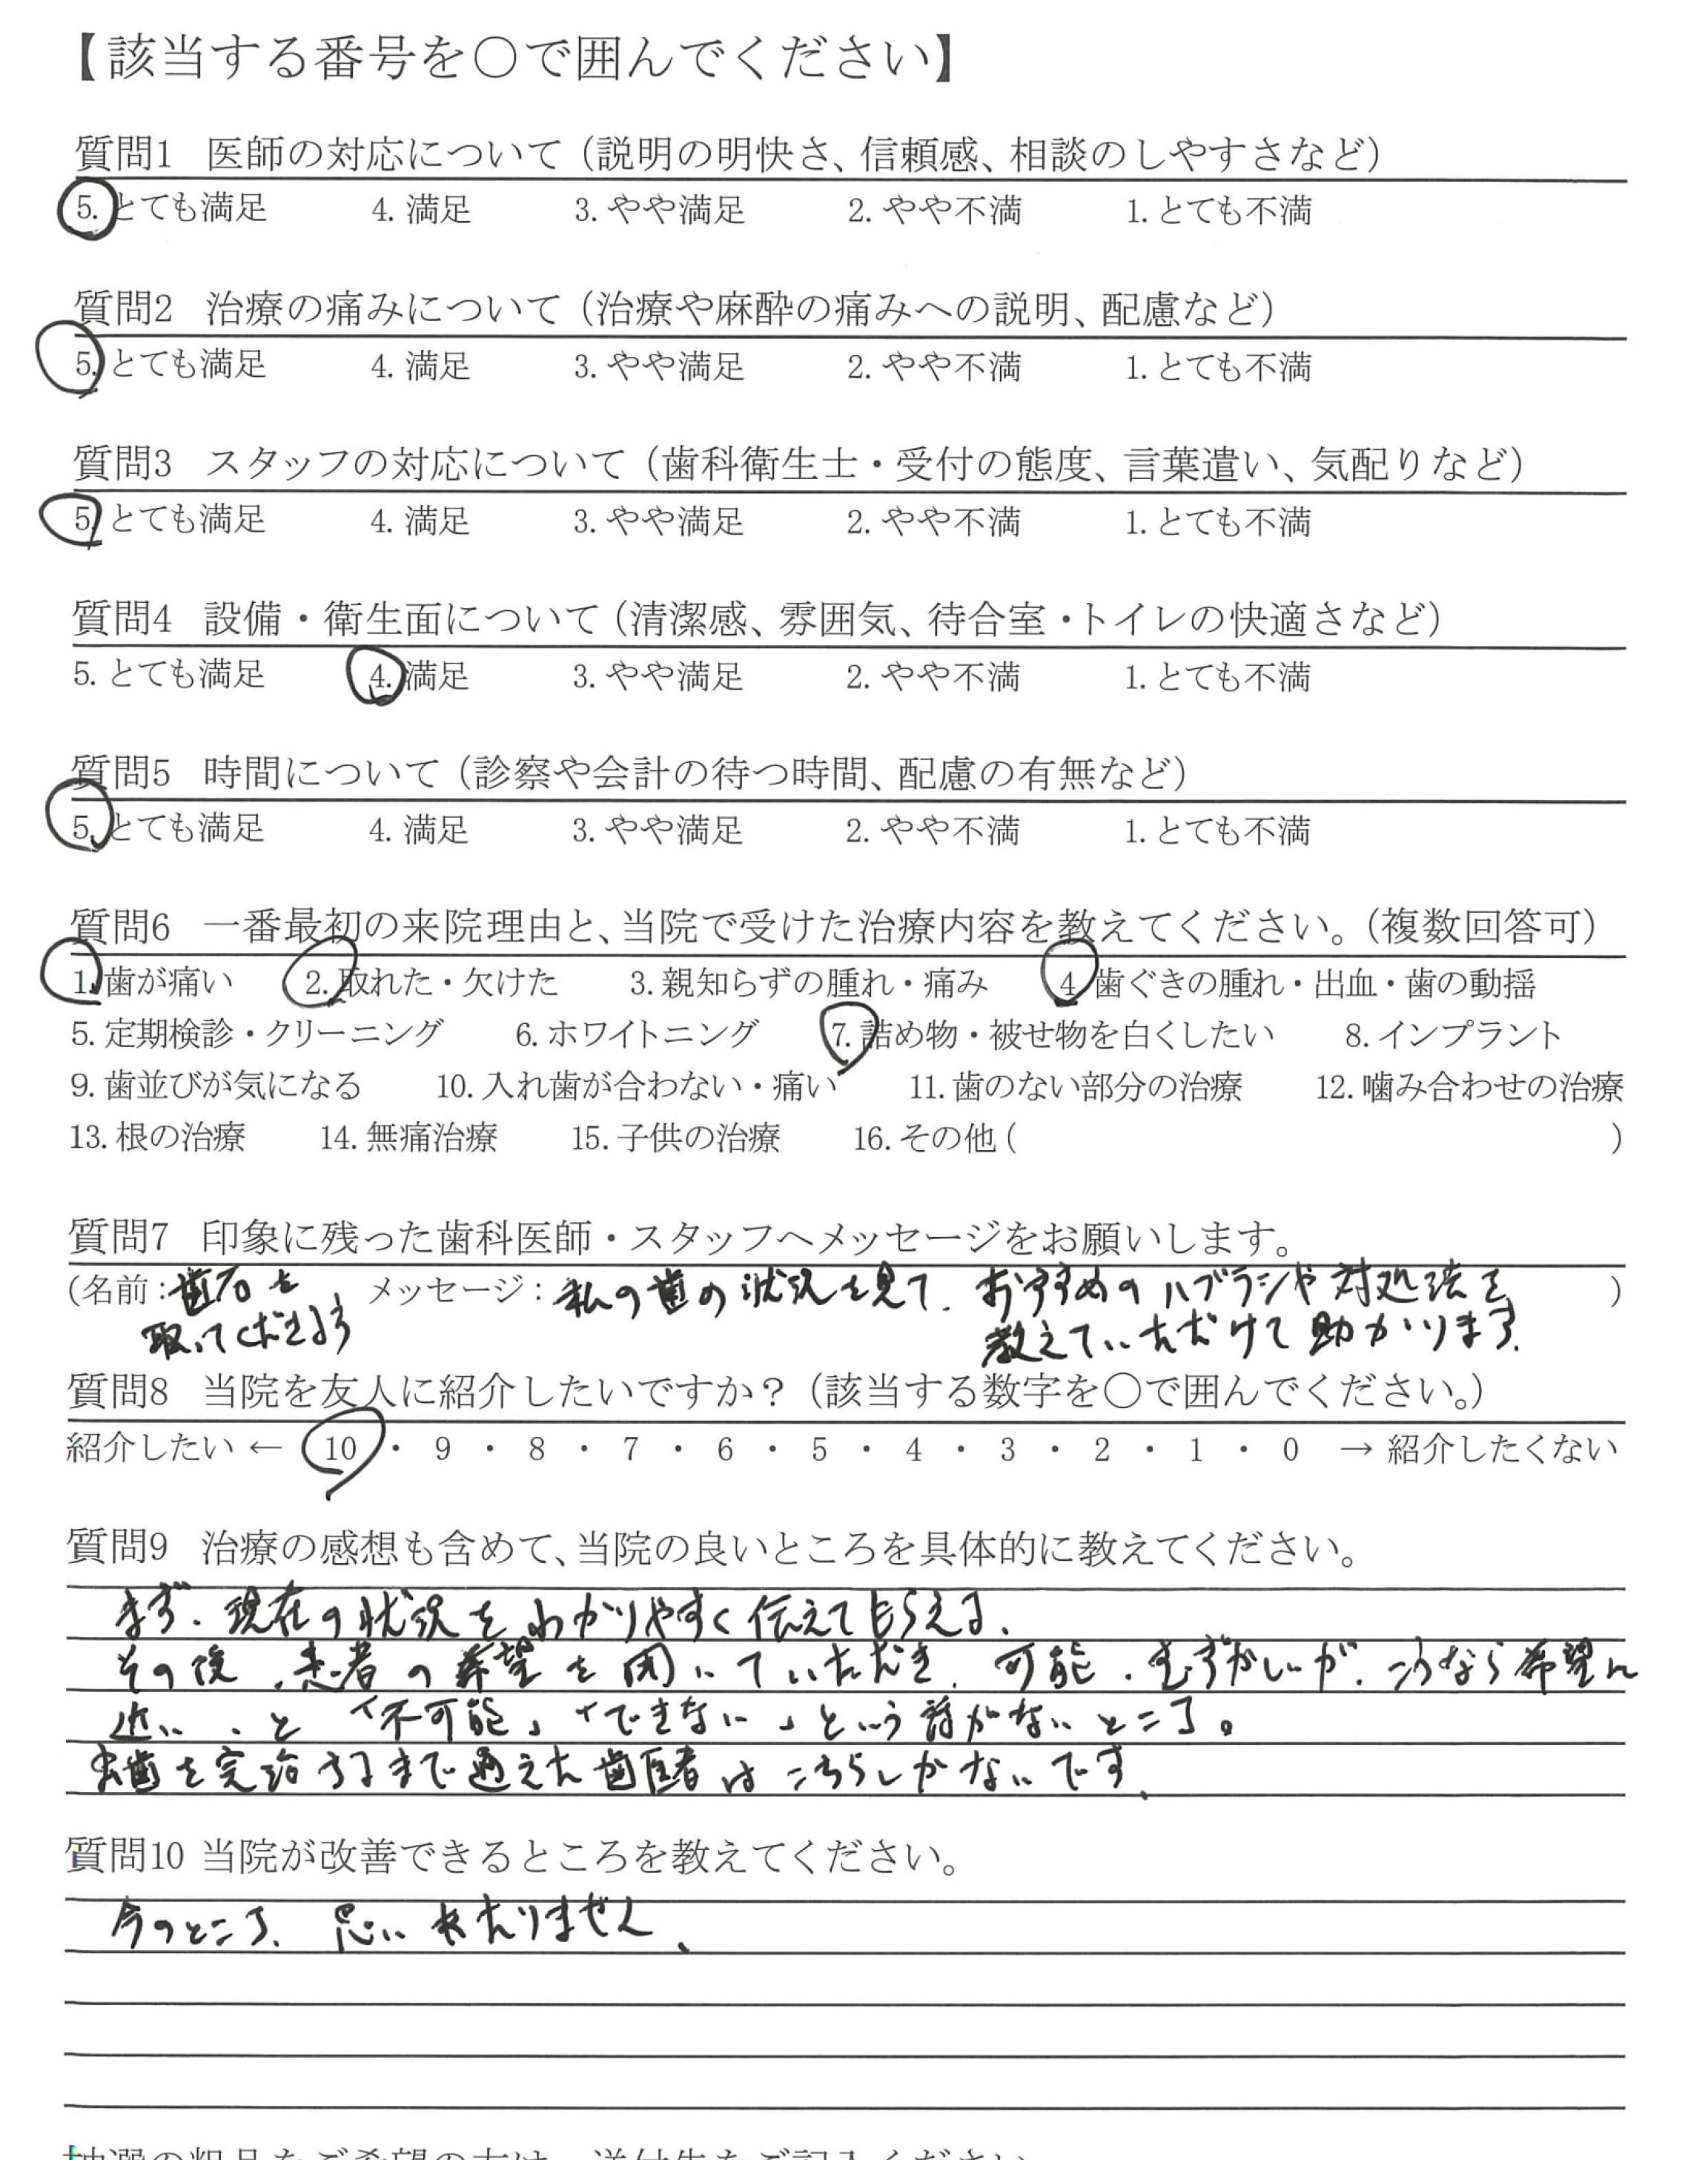 【該当する番号を○で囲んでください】
質問1 医師の対応について（説明の明快さ、信頼感、相談のしやすさなど）
5. とても満足 4. 満足 3. やや満足 2. やや不満 1. とても不満
質問2 治療の痛みについて（治療や麻酔の痛みへの説明、配慮など）
5. とても満足 4. 満足 3. やや満足 2. やや不満 1. とても不満
質問3 スタッフの対応について（歯科衛生士・受付の態度、言葉遣い、気配りなど）
5. とても満足 4. 満足 3. やや満足 2. やや不満 1. とても不満
質問4 設備・衛生面について（清潔感、雰囲気、待合室・トイレの快適さなど）
5. とても満足 4. 満足 3. やや満足 2. やや不満 1. とても不満
質問5 時間について（診察や会計の待つ時間、配慮の有無など）
5. とても満足 4. 満足 3. やや満足 2. やや不満 1. とても不満
質問6 一番最初の来院理由と、当院で受けた治療内容を教えてください。（複数回答可）
1. 歯が痛い 2. 取れた・欠けた 3. 親知らずの腫れ・痛み 4. 歯ぐきの腫れ・出血・歯の動揺
5. 定期検診・クリーニング 6. ホワイトニング 7. 詰め物・被せ物を白くしたい 8. インプラント
9. 歯並びが気になる 10. 入れ歯が合わない・痛い 11. 歯のない部分の治療 12. 噛み合わせの治療
13. 根の治療 14. 無痛治療 15. 子供の治療 16. その他（ ）
質問7 印象に残った歯科医師・スタッフへメッセージをお願いします。
（名前：歯石を メッセージ：私の歯の状況を見て、おすすめのハブラシや対処法を ）
取ってくださる方 教えていただけて助かります。
質問8 当院を友人に紹介したいですか？（該当する数字を○で囲んでください。）
紹介したい ← 10 ・ 9 ・ 8 ・ 7 ・ 6 ・ 5 ・ 4 ・ 3 ・ 2 ・ 1 ・ 0 → 紹介したくない
質問9 治療の感想も含めて、当院の良いところを具体的に教えてください。
まず、現在の状況をわかりやすく伝えてもらえる。
その後、患者の希望を聞いていただき、可能、むずかしいが、こうなら希望に
近い、と「不可能」「できない」という話がないところ。
虫歯を完治するまで通えた歯医者はこちらしかないです。
質問10 当院が改善できるところを教えてください。
今のところ、思い当たりません。
抽選の粗品をご希望の方は、送付先をご記入ください